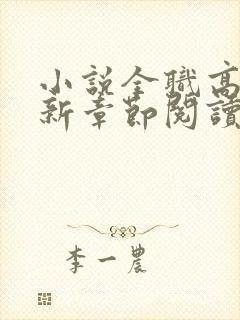 小說全職高
新章節閱讀
李一農